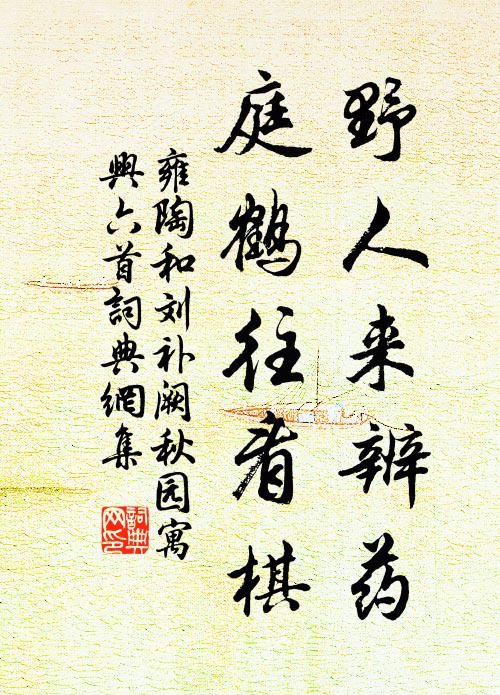 野人来辨药
庭鹤往看棋
雍陶和刘补阙秋园寓
興六首詞典網集
詞典网印